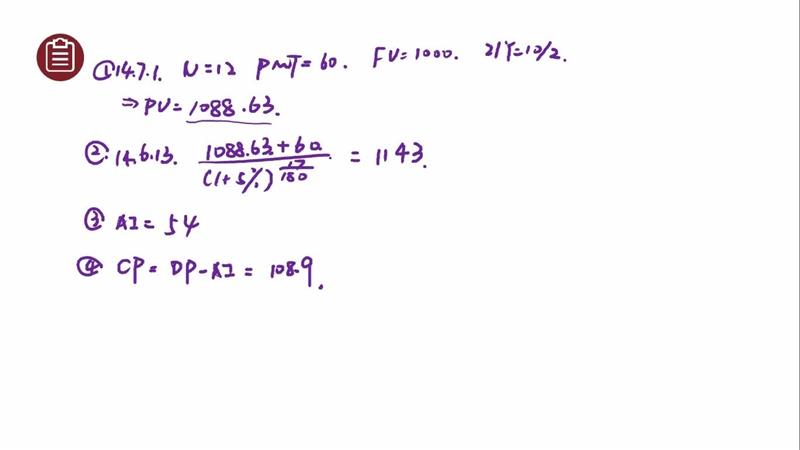 ① 14.7.1. N=12 PMT=60. FV=1000. I/Y=10/2.
⇒ PV=1088.63.
②. 14.6.13. (1088.63+60)/(1+5%)^(17/180) = 1143.
③ AI= 54
④ CP= DP-AI = 1089.